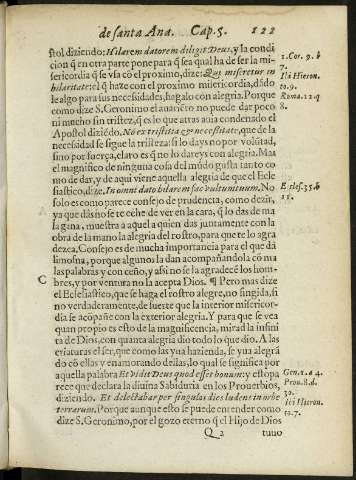 de santa Ana. Cap. 5. 122
stol diziendo: Hilarem datorem diligit Deus, y la condi
cion q̃ en otra parte pone para q̃ sea qual ha de ser la mi-
sericordia q̃ se vsa cõ el proximo, dize: Qui miseretur in
hilaritate: el q̃ haze con el proximo misericordia, dãdo
le algo para sus necessidades, hagalo con alegria. Porque
como dize S. Geronimo el auariẽto no puede dar poco
ni mucho sin tristez, q̃ es lo que atras auia condenado el
Apostol diziẽdo. Nõ ex tristitia et necessitate, que de la
necessidad se sigue la tristeza: si lo days no por volũtad,
sino por fuerça, claro es q̃ no lo dareys con alegria. Mas
el magnifico de ninguna cosa del mũdo gusta tanto co
mo de dar, y de aqui viene aquella alegria de que el Ecle
siastico, dize. In omni dato hilarem fac vultum tuum. No
solo es como parece consejo de prudencia, como dezir,
ya que das no se te eche de ver en la cara, q̃ lo das de ma
la gana, muestra a aquel a quien das juntamente con la
obra de la mano la alegria del rostro, para que te lo agra
dezca, Consejo es de mucha importancia para el que dà
limosna, porque algunos la dan acompañandola cõ ma
las palabras y con ceño, y assi no se la agradecẽ los hom-
bres, y por ventura no la acepta Dios. ¶ Pero mas dize
el Eclesiastico, que se haga el rostro alegre, no fingida, si
no verdaderamente, de suerte que la interior misericor-
dia se acõpañe con la exterior alegria. Y para que se vea
quan propio es esto de la magnificencia, mirad la infini
ta de Dios, con quanta alegria dio todo lo que dio. A las
criaturas el ser, que como las yua hazienda, se yua alegrã
do cõ ellas y enamorando dellas, lo qual se significa por
aquella palabra Et vidit Deus quod esset bonum: y esto pa
rece que declara la diuina Sabiduria en los Prouerbios,
diziendo. Et delectabar per singulos dies ludens in orbe
terrarum. Porque aunque esto se puede entender como
dize S. Geronimo, por el gozo eterno q̃ el Hijo de Dios
Q 2 tuuo
2. Cor. 9. b
7.
Ibi Hieron.
to. 9.
Roma. 12. q
8.
Eclesi. 35. b
11.
C
Gen. 1. a 4.
Prou. 8. d.
30.
ibi Hieron.
to. 7.